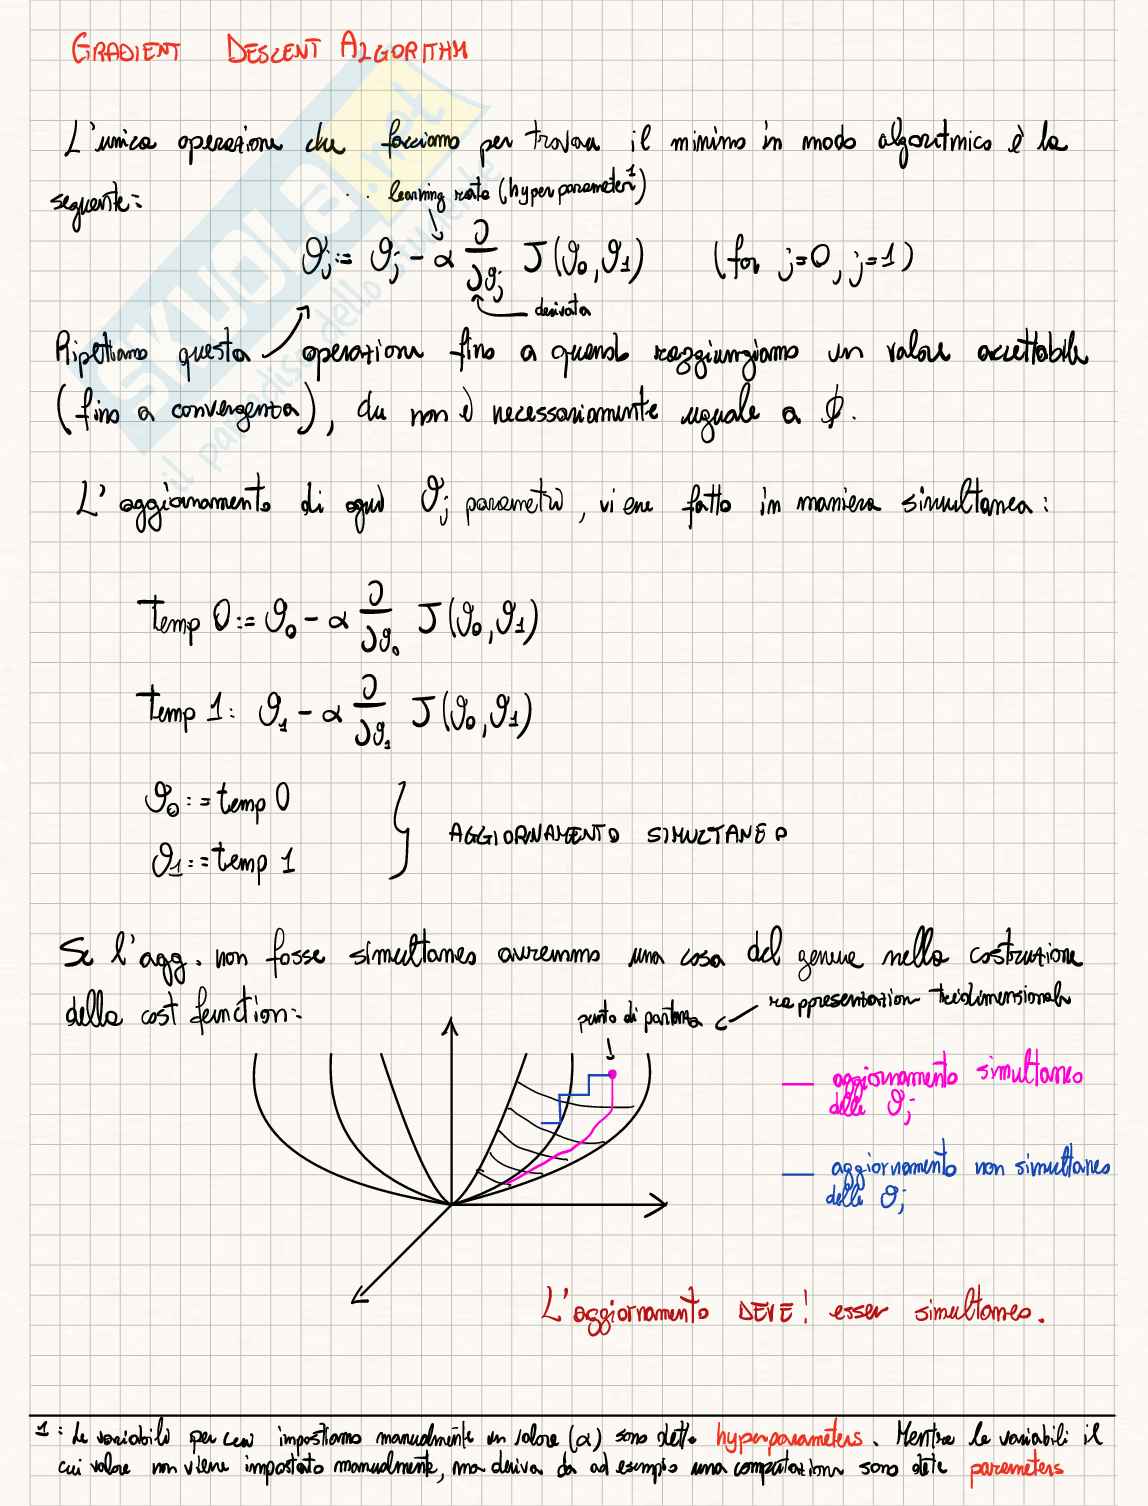 GRADIENT DESCENT ALGORITHM
L'unica operazione che facciamo per trovare il minimo in modo algoritmico è la
learning rate (hyperparameter¹)
seguente:
ϑj := ϑj - α ∂/∂ϑj J(ϑ0, ϑ1) (for j=0, j=1)
derivata
Ripetiamo questa operazione fino a quando raggiungiamo un valore accettabile
(fino a convergenza), che non è necessariamente uguale a ∅.
L'aggiornamento di ogni ϑj parametro, viene fatto in maniera simultanea:
temp 0 := ϑ0 - α ∂/∂ϑ0 J(ϑ0, ϑ1)
temp 1: ϑ1 - α ∂/∂ϑ1 J(ϑ0, ϑ1)
ϑ0 := temp 0
ϑ1 := temp 1
AGGIORNAMENTO SIMULTANEO
Se l'agg. non fosse simultaneo avremmo una cosa del genere nella costruzione
della cost function:
rappresentazione tridimensionale
punto di partenza
aggiornamento simultaneo
delle ϑj
aggiornamento non simultaneo
delle ϑj
L'aggiornamento DEVE! esser simultaneo.
1: Le variabili per cui impostiamo manualmente un valore (α) sono dette hyperparameters. Mentre le variabili il
cui valore non viene impostato manualmente, ma deriva da ad esempio una computazione sono dette parameters
SKUOLA.net
il paradiso dello studente